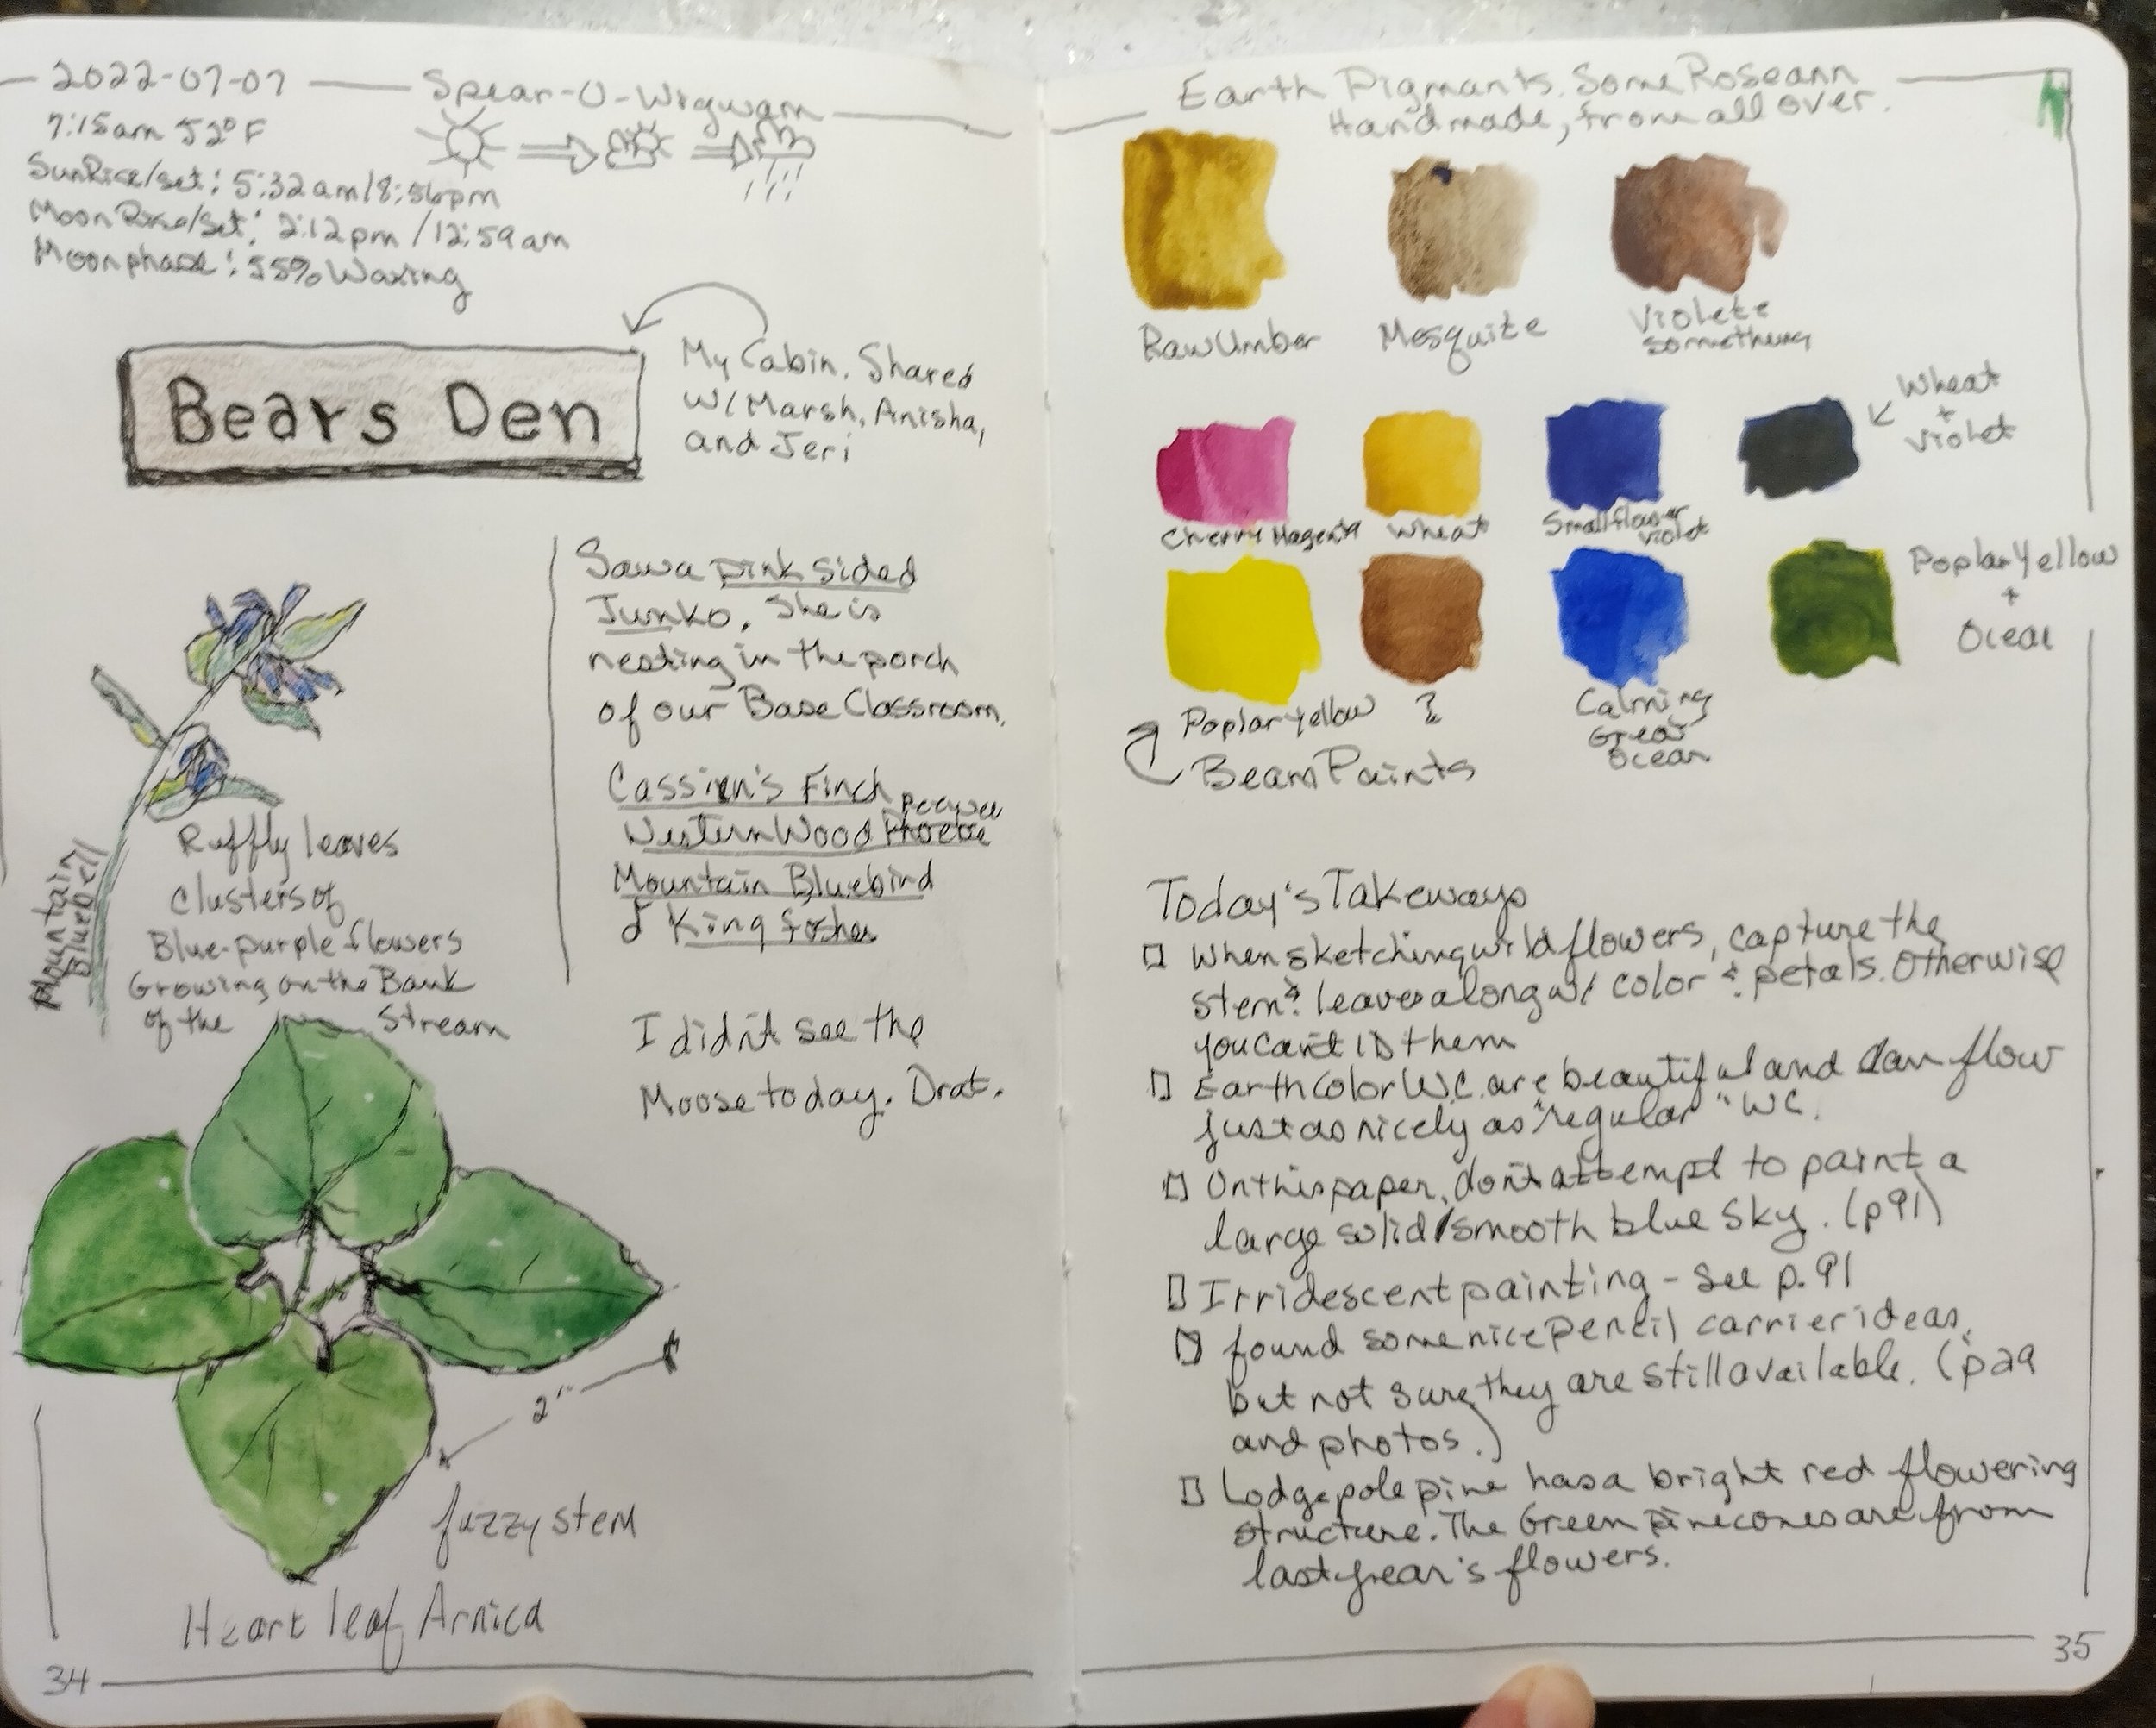 2022-07-07
Spear-O-Wigwam
7:15am 52°F
SunRise/set: 5:32am/8:56pm
MoonRise/Set: 2:12pm/12:59am
Moonphase: 55% Waxing
Bears Den
My Cabin. Shared
w/Marsh, Anisha,
and Jeri
Saw a pink sided
Junko. She is
nesting in the porch
of our Base Classroom.
Cassien's Finch
peeywee
Western Wood Phoebe
Mountain Bluebird
& King fisher
I didn't see the
Moose today. Drat.
Mountain
Bluebell
Ruffly leaves
clusters of
Blue-purple flowers
Growing on the Bank
of the Stream
2"
fuzzy stem
Heart leaf Arnica
34
Earth Pigmants. Some Roseann
Handmade, from all over.
Raw Umber
Mesquite
Violete
something
Cherry Magenta
Wheat
Smallflower
violet
Wheat
+
violet
Poplar Yellow
?
Calming
Great
Ocean
Poplar Yellow
+
Ocean
Beam Paints
Today's Takeways
When sketching wildflowers, capture the
stem & leaves along w/ color & petals. Otherwise
you can't ID them
Earth Color W.C. are beautiful and can flow
just as nicely as "regular" WC.
On this paper, don't attempt to paint a
large solid/smooth blue sky. (p91)
Irridescent painting - see p. 91
found some nice pencil carrier ideas,
but not sure they are still available. (p29
and photos.)
Lodgepole pine has a bright red flowering
structure. The Green pinecones are from
last year's flowers.
35